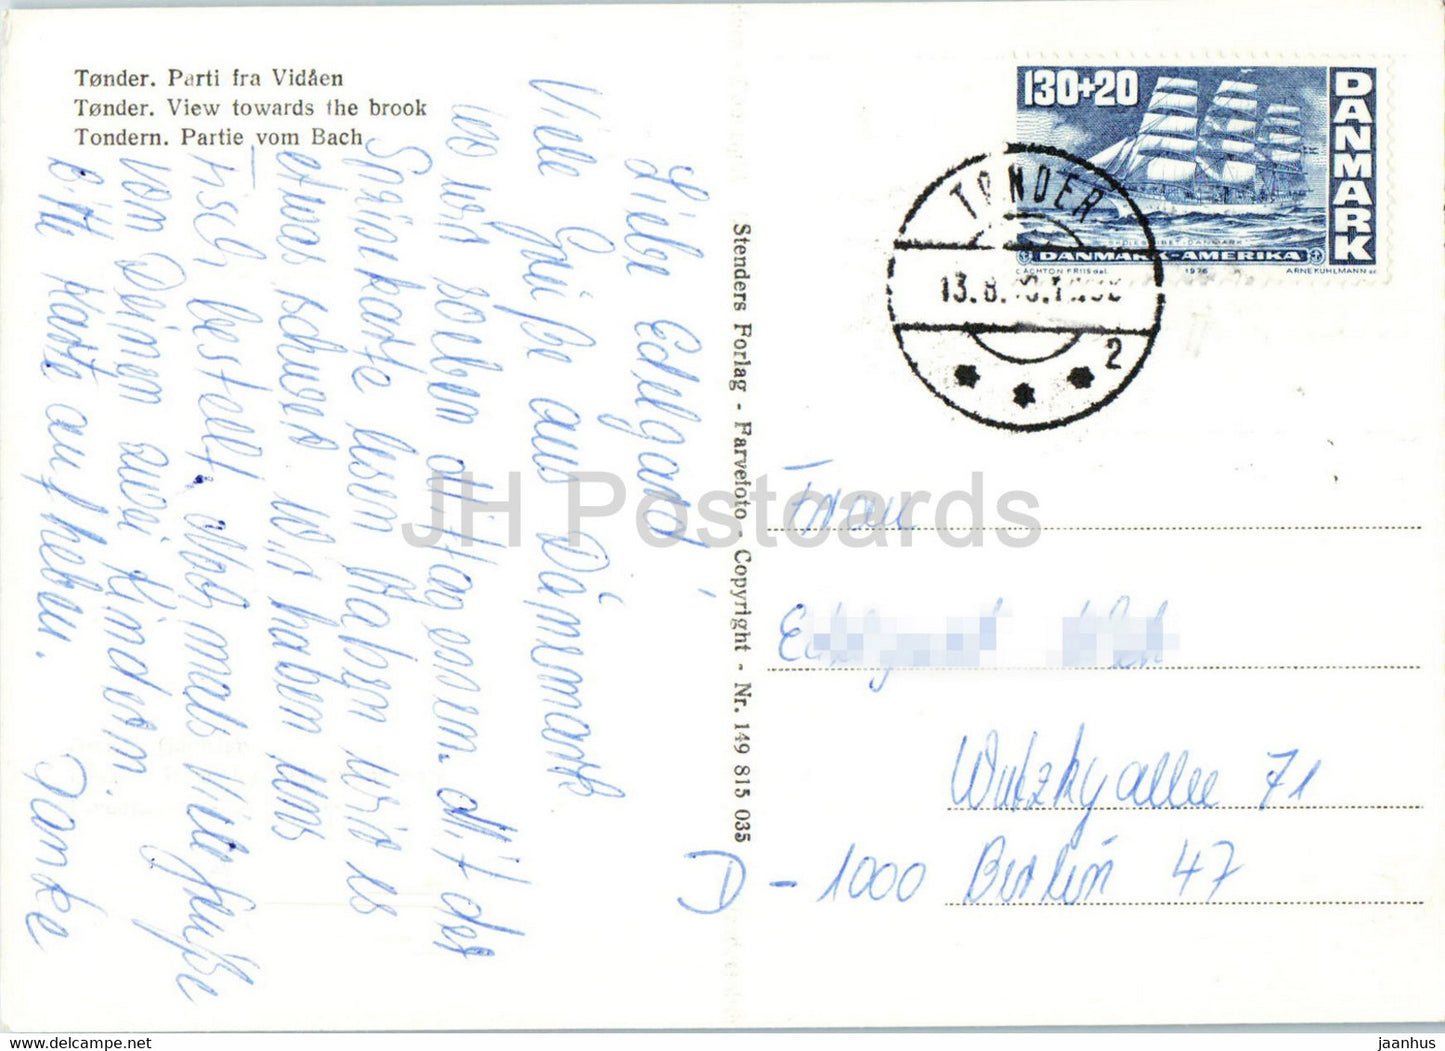 Tønder. Parti fra Vidåen
Tønder. View towards the brook
Tondern. Partie vom Bach
Liebe Edelgard!
Viele Grüße aus Dänemark
wo wir soeben Mittag essen. Mit der
Speisekarte lesen haben wird es
etwas schwer wir haben uns
Fisch bestellt. Nochmals viele Grüße
von Deinen zwei Kindern.
bitte Karte aufheben. Danke
Stenders Forlag - Farvefoto - Copyright - Nr. 149 815 035
130+20
DANMARK
DANMARK-AMERIKA
CACHTON FRIIS del. 1976 ARNE KUHLMANN sc
TØNDER
13.8.
2
Frau
Wutzkyallee 71
D - 1000 Berlin 47
JH Postcards
www.delcampe.net
jaanhus